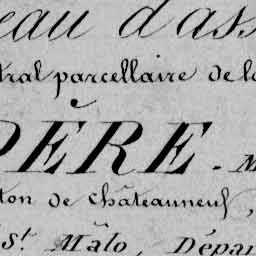 eau d'ass
tral parcellaire de la
PÈRE - M
ton de Châteauneuf,
St. Malo, Dépar